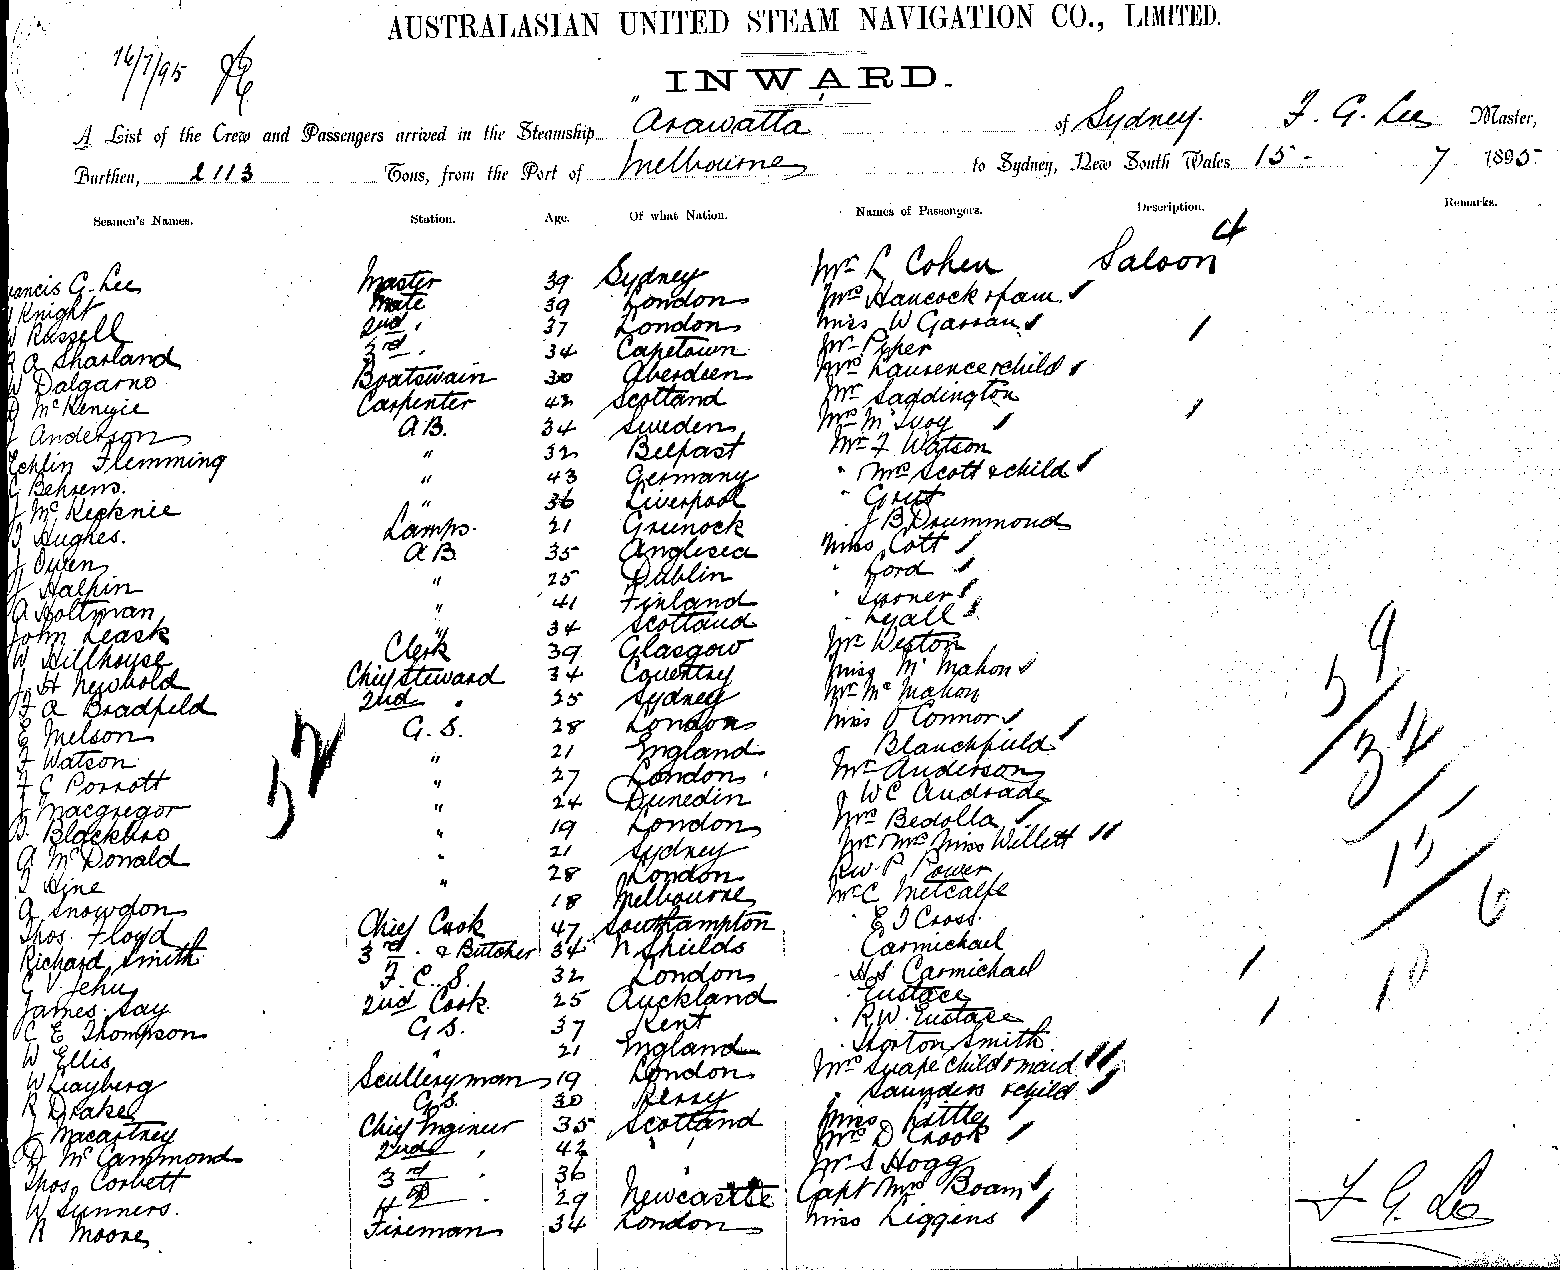 AUSTRALASIAN UNITED STEAM NAVIGATION CO., LIMITED.
16/7/95
INWARD.
A List of the Crew and Passengers arrived in the Steamship "Arawatta" of Sydney. F. G. Lee Master,
Burthen, 2113 Tons, from the Port of Melbourne to Sydney, New South Wales 15 - 7 1895
Seamen's Names. Station. Age. Of what Nation. Names of Passengers. Description. Remarks.
Francis G. Lee Master 39 Sydney Mr L Cohen Saloon 4
Knight Mate 39 London Mrs Hancock & fam
W Russell 2nd " 37 London Miss W Garran
A Sharland 3rd " 34 Capetown Mr Piper
W Dalgarno Boatswain 30 Aberdeen Mrs Laurence & child
D McKenzie Carpenter 42 Scotland Mr Saddington
J Anderson A B. 34 Sweden Mrs McIvoy
Echlin Flemming " 32 Belfast Mr F Watson
C Behrens. " 43 Germany " Mrs Scott & child
J McKecknie " 36 Liverpool "
Hughes. Lamps. 21 Greenock " J B Drummond
J Owen A B 35 Anglisea Miss Cott
J Halpin " 25 Dublin " Ford
A Holtman " 41 Finland " Turner
John Leask " 34 Scotland " Lyall
W Hillhouse Clerk 39 Glasgow Mr Weston
J H Newbold Chief Steward 34 Coventry Miss McMahon
F A Bradfield 2nd " 25 Sydney Mr McMahon
E Melson G. S. 28 London Miss O'Connor
F Watson " 21 England " Blanchfield
F E Porrott " 27 London Mr Anderson
J Macgregor " 24 Dunedin " W C Andrade
Blackbro " 19 London Mrs Bedolla
A McDonald " 21 Sydney Mr Mrs Miss Willett
Hine " 28 London Rev. P Power
A Snowdon 18 Melbourne Mr C Metcalfe
Thos. Floyd Chief Cook 47 Southampton " E J Cross
Richard Smith 3rd " & Butcher 34 N Shields " Carmichael
C V Jehu F. C. S. 32 London " H S Carmichael
James Say 2nd Cook 25 Auckland " Eustace
C E Thompson G S. 37 Kent " R W Eustace
W Ellis " 21 England " Horton Smith
W Sculleryman 19 London Mrs Snape child & maid
R Drake G S. 30 " Saunders & child
J Macartney Chief Engineer 35 Scotland Miss Little
D McCammond 2nd " 42 " " Mrs D Crook
Thos. Corbett 3rd " 36 Mr S Hogg
W Sunners. 4th " 29 Newcastle Capt Mrs Boam
R Moore Fireman 34 London Miss Liggins
52
59
32
15
6
10
F G. Lee